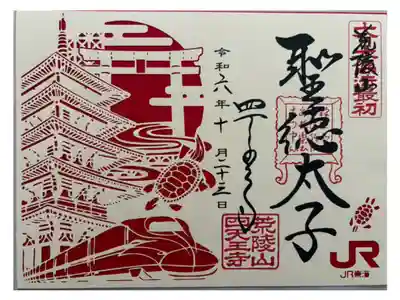 荒陵山
聖徳太子
令和六年十月二十三日
四天王寺
荒陵山
四天王寺
JR
JR東海